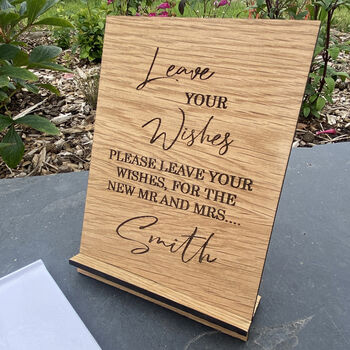 Leave
YOUR
Wishes
PLEASE LEAVE YOUR
WISHES, FOR THE
NEW MR AND MRS....
Smith